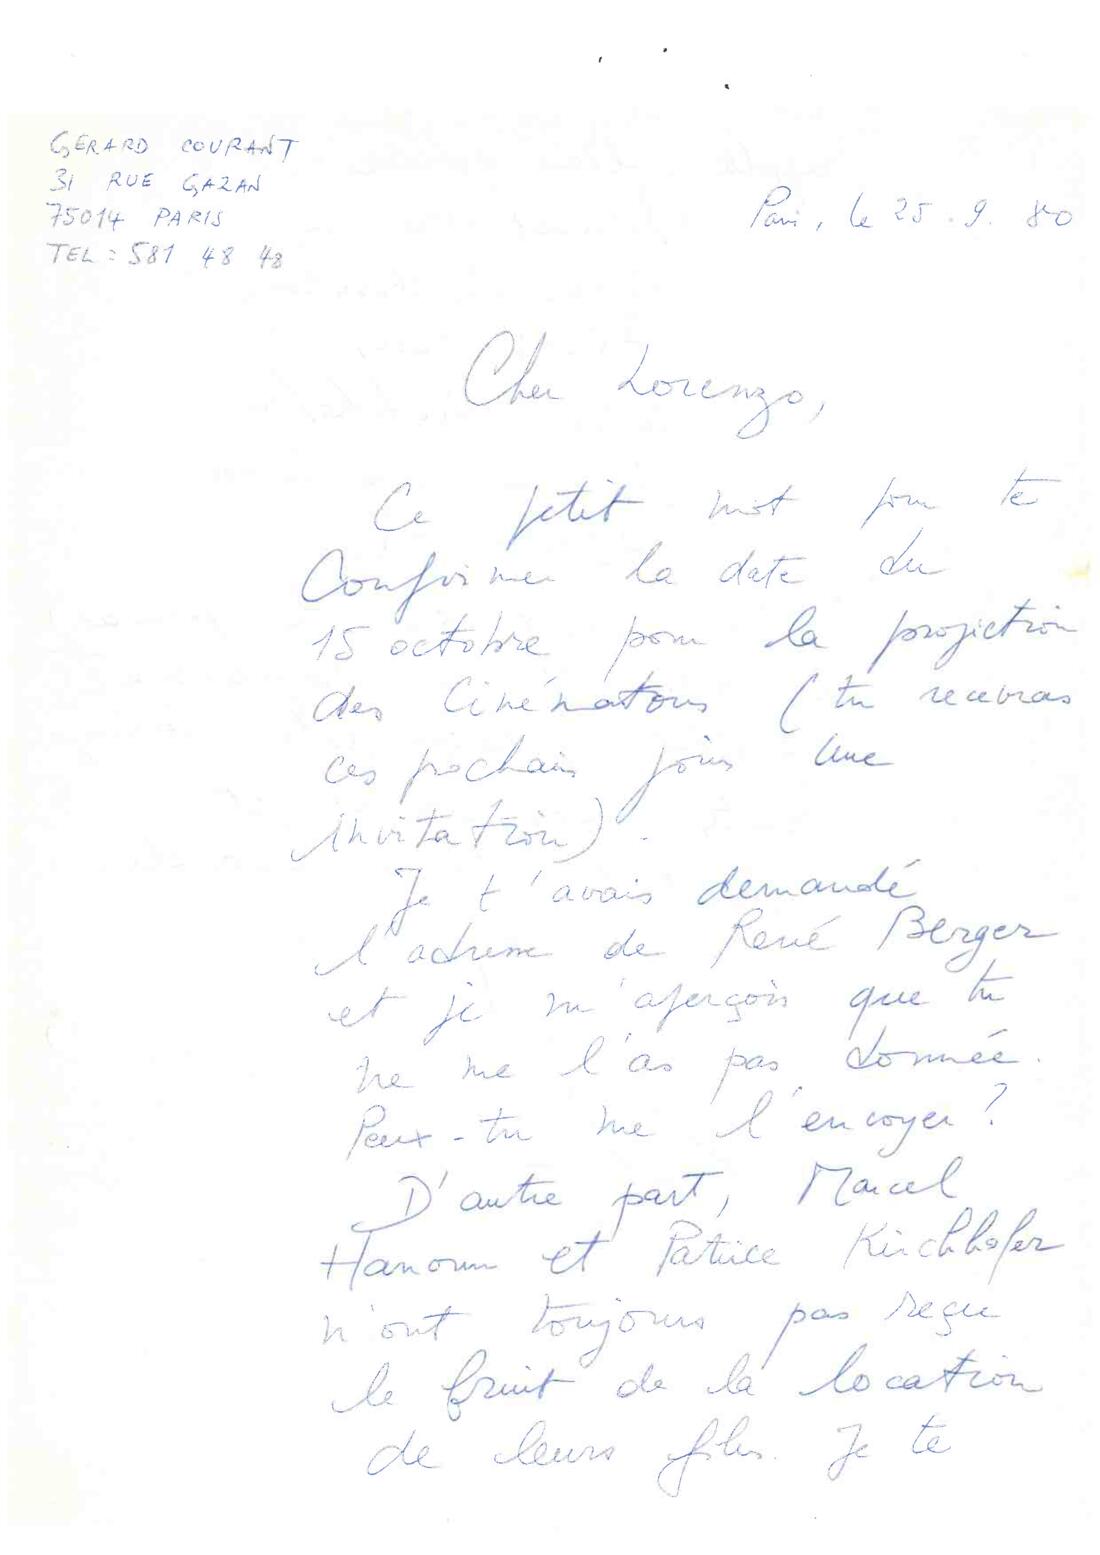 GÉRARD COURANT
31 RUE GAZAN
75014 PARIS
TEL : 581 48 48
Paris, le 25. 9. 80
Cher Lorenzo,
Ce petit mot pour te
Confirmer la date du
15 octobre pour la projection
des Cinématons (tu recevras
ces prochains jours une
invitation).
Je t'avais demandé
l'adresse de René Berger
et je m'aperçois que tu
ne me l'as pas donnée.
Peux-tu me l'envoyer ?
D'autre part, Marcel
Hanoun et Patrice Kirchhofer
n'ont toujours pas reçu
le fruit de la location
de leurs films. Je te